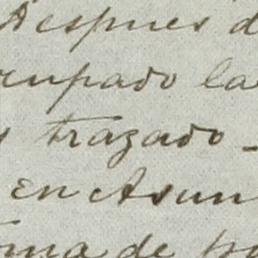 Despues d
rupado la
y trazado -
en Asun
oma de po